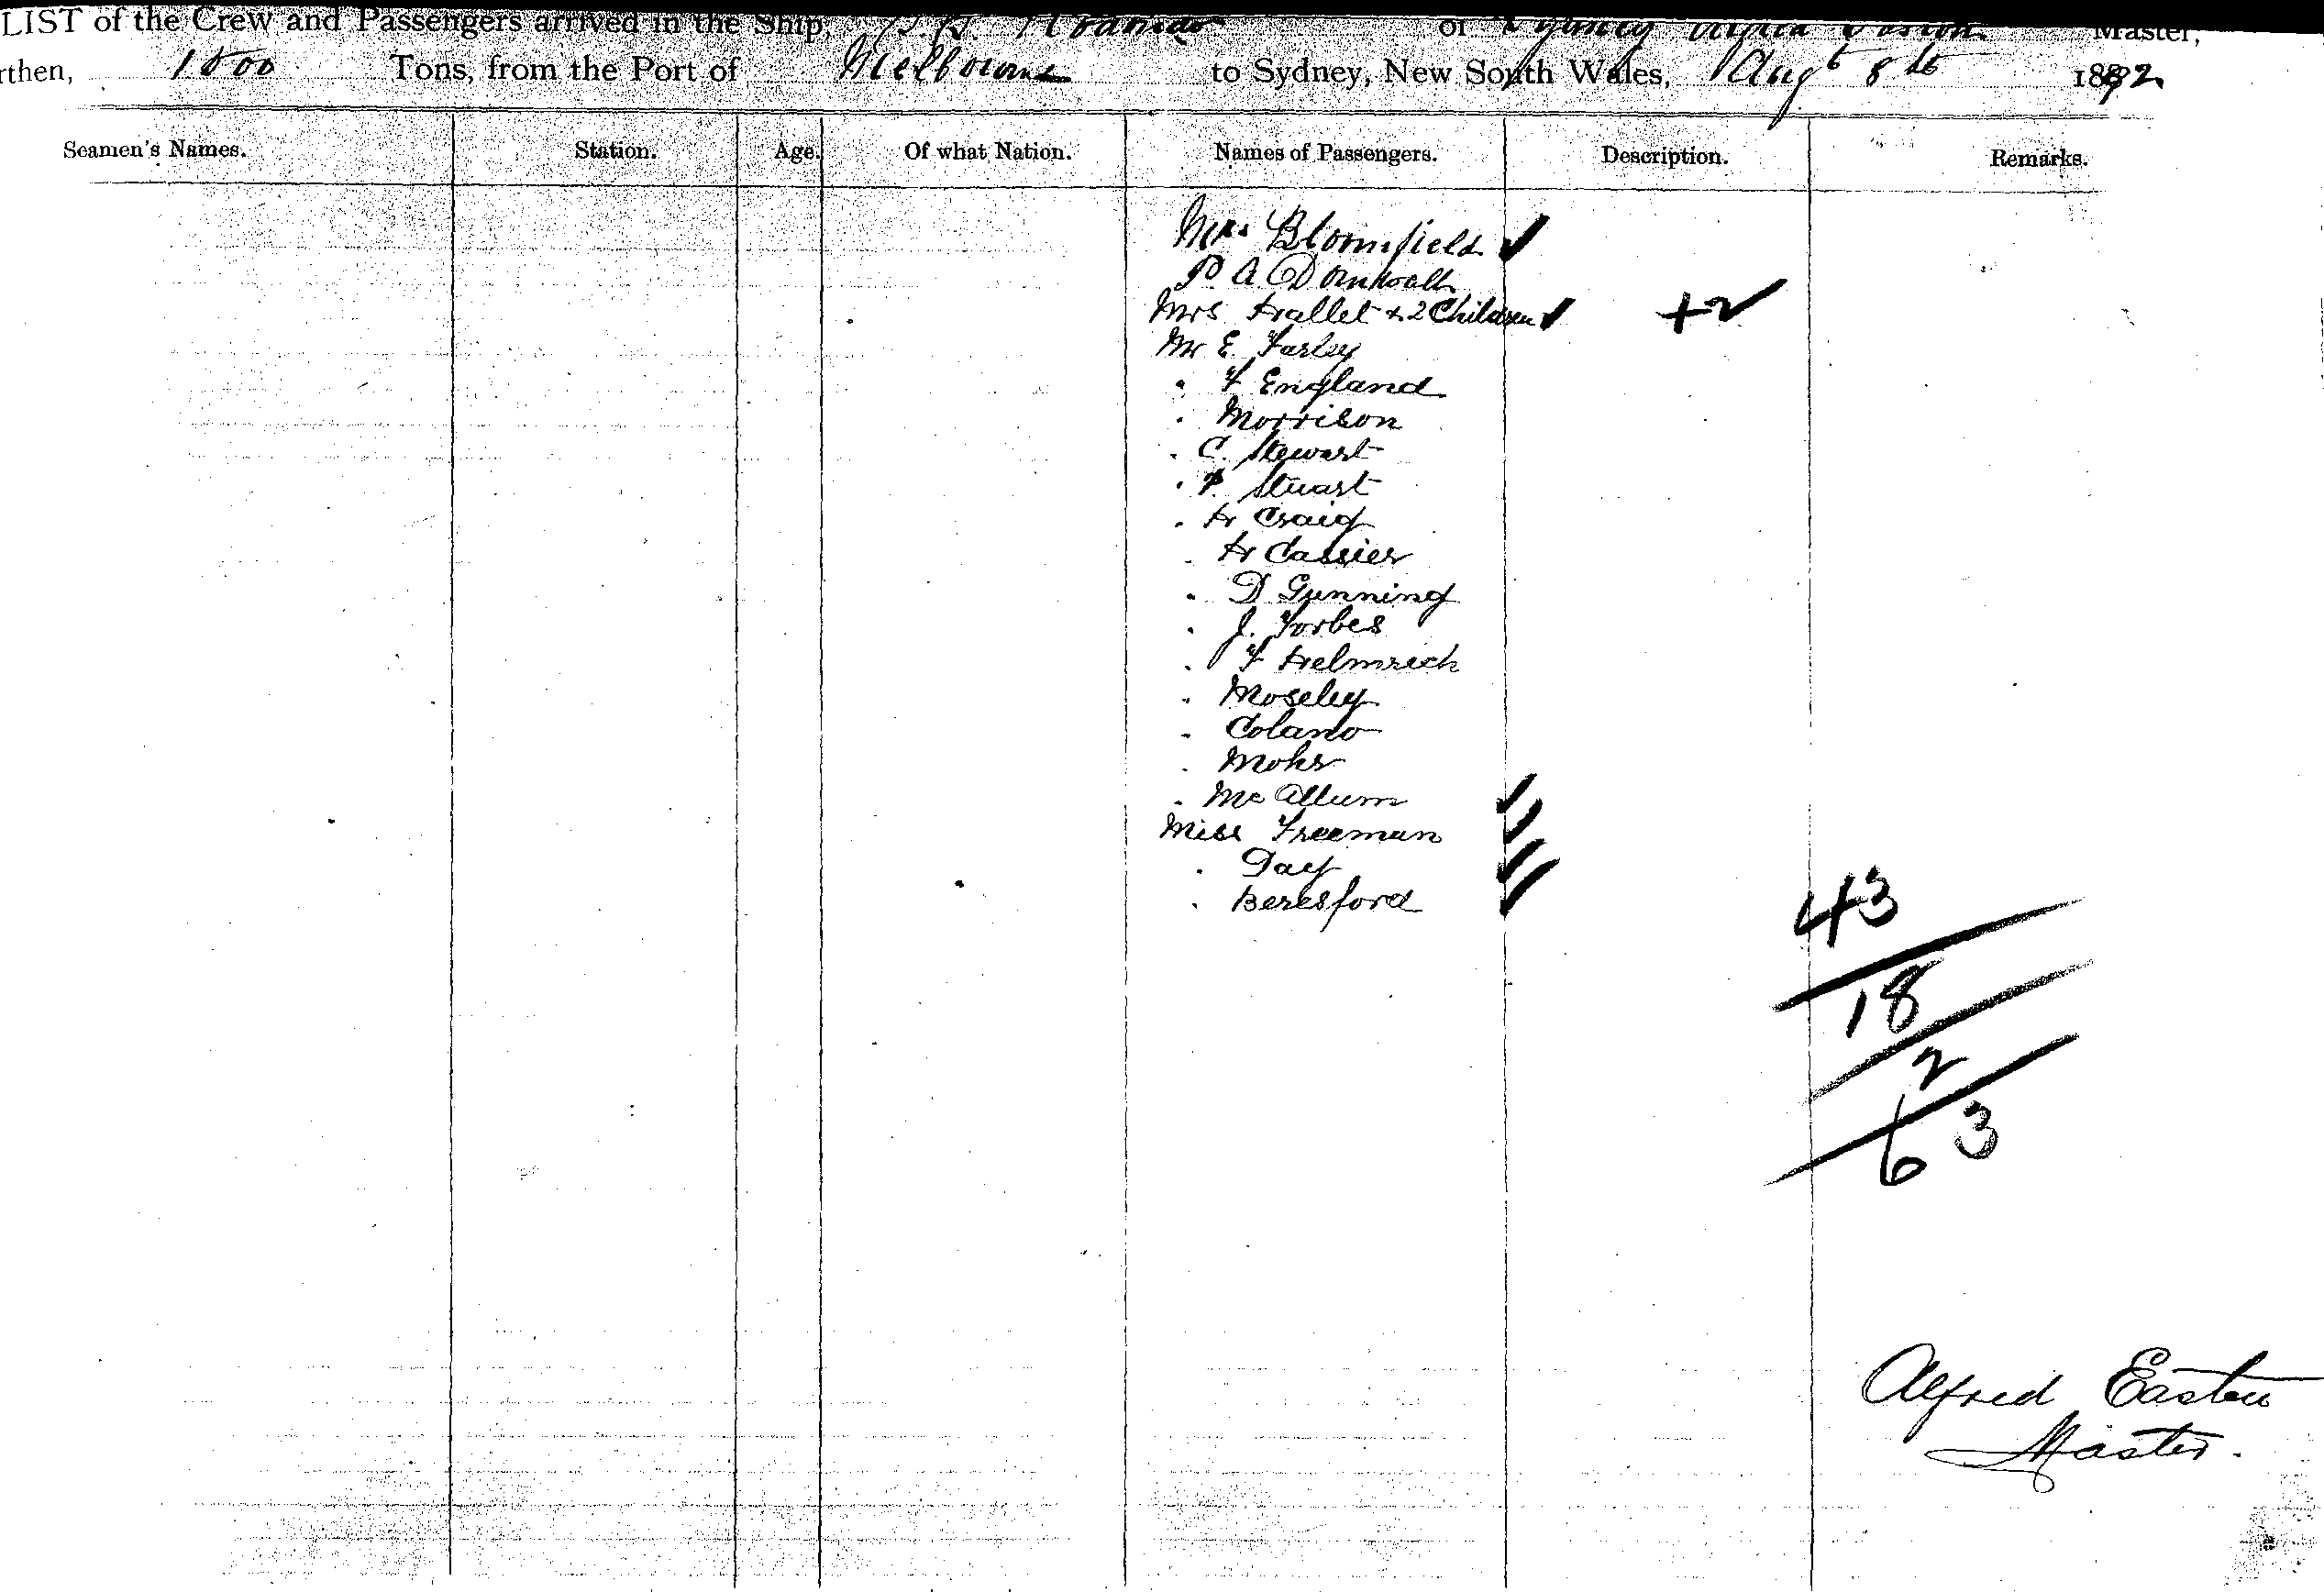 LIST of the Crew and Passengers arrived in the Ship, of Sydney Master,
rthen, 1500 Tons, from the Port of Melbourne to Sydney, New South Wales, Augt 8th 1892
Seamen's Names. Station. Age. Of what Nation. Names of Passengers. Description. Remarks.
Mrs Bloomfield ✓
P. A.
Mrs Hallet + 2 Children ✓ +2
Mr E. Farley
" F England
" Morrison
" C. Stewart
" F. Stuart
" H Craig
" H Cassier
" D Gunning
" J. Forbes
" F Helmrich
" Moseley
" Colano
" Mohr
" Mc Allum ✓
Miss Freeman ✓
" Day ✓
" Beresford ✓
43
18
2
63
Alfred Easton
Master.